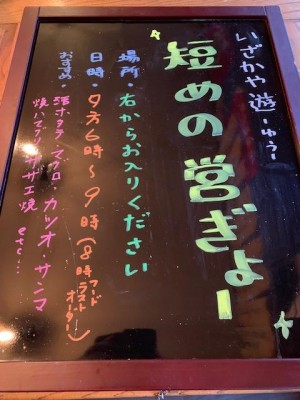 いざかや 遊-ゆう-
短めの営ぎょー
場所・右からお入りください
日時・夕方6時〜9時(8時フードラストオーダー)
おすすめ・活ホタテ・マグロ・カツオ・サンマ
焼ハマグリ・サザエ焼 etc...